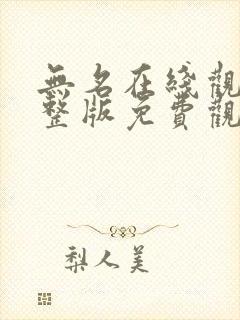 無名在綫觀
整版免費觀
梨人美